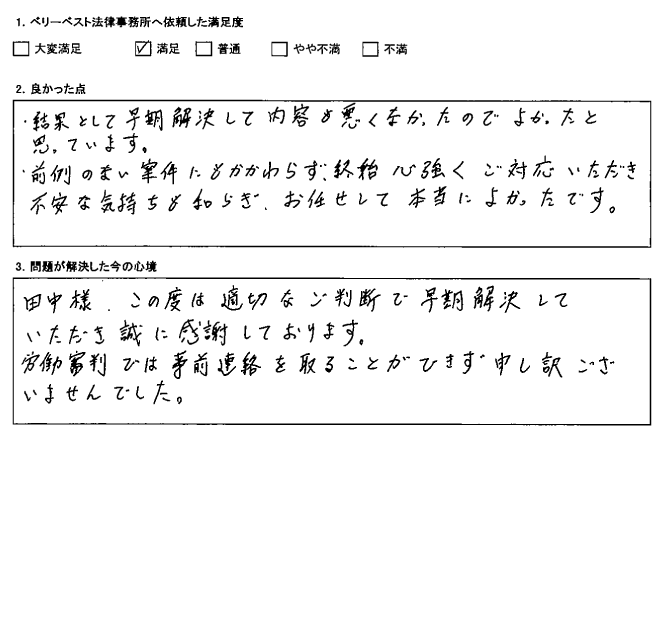 1. ベリーベスト法律事務所へ依頼した満足度
□ 大変満足 ☑ 満足 □ 普通 □ やや不満 □ 不満
2. 良かった点
・結果として早期解決して内容も悪くなかったのでよかったと
思っています。
・前例のない案件にもかかわらず、終始心強くご対応いただき
不安な気持ちも和らぎ、お任せして本当によかったです。
3. 問題が解決した今の心境
田中様、この度は適切なご判断で早期解決して
いただき誠に感謝しております。
労働審判では事前連絡を取ることができず申し訳ござ
いませんでした。